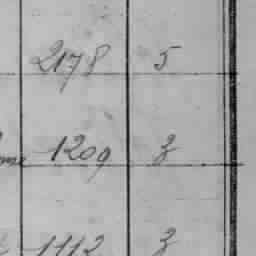 2178 5
1209 3
1112 3